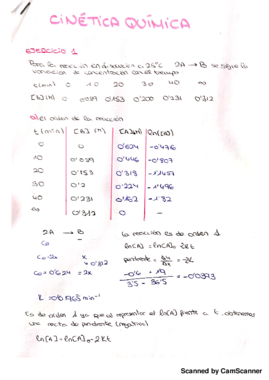 CINÉTICA QUÍMICA
EJERCICIO 1
Para la reacción en disolución a 25ºC 2A → B se sigue la
variación de concentración con el tiempo
t(min) 0 10 20 30 40 ∞
[B](M) 0 0'089 0'153 0'200 0'231 0'312
a) El orden de la reacción
t (min) [B] (M) [A](M) ln[A]
0 0 0'624
10 0'089 0'446 -0'807
20 0'153 0'318
30 0'2 0'224 -1'496
40 0'231 0'162 -1'82
∞ 0'312 0 -
2A → B la reacción es de orden 1
C₀ - ln[A] = ln[A]₀ - 2Kt
C₀-2x x pendiente = = -2K
0'312
C₀ = 0'624 = 2x
K = min⁻¹
Es de orden 1 ya que al representar el ln[A] frente a t, obtenemos
una recta de pendiente (negativa)
ln[A] = ln[A]₀ - 2Kt
Scanned by CamScanner
Scanned by CamScanner